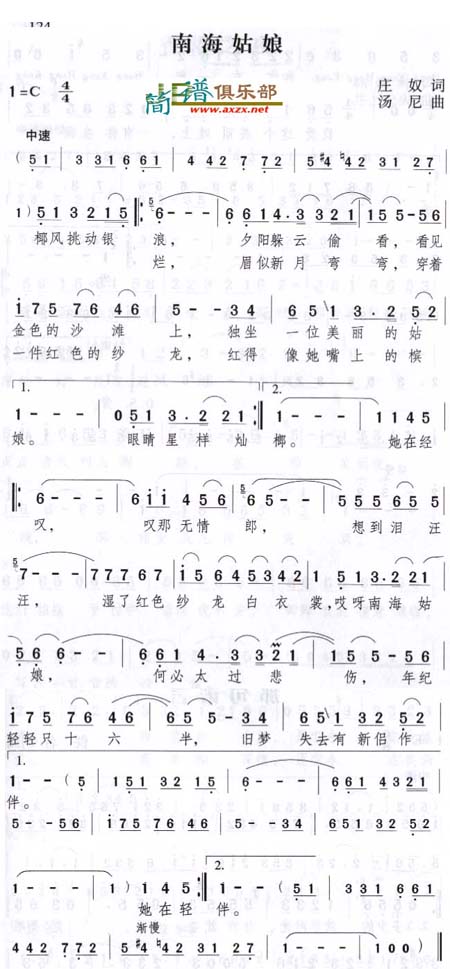 134
南海姑娘
1=C 4/4
简谱俱乐部
www.axzx.net
庄 奴 词
汤 尼 曲
中速
(51 331661 442 7 72 5442 31 27
1)513215 6--- 6614.3321 155-56
椰风挑动银 浪, 夕阳躲云 偷 看, 看见
烂, 眉似新月 弯 弯, 穿着
175 76 46 5--34 651 3.252
金色的 沙 滩 上, 独坐 一位美 丽 的 姑
一件红 色的 纱 龙, 红得 像她嘴 上 的 槟
1. 2.
1--- 051 3.2 221 1-- 1145
娘。 眼睛 星样 灿 榔。 她在经
6--- 6ii 456 6--- 555 655
叹, 叹那 无情 郎, 想到 泪汪
7--- 777767 i5645342 1 51 3.221
汪, 湿了红色 纱 龙 白 衣 裳, 哎呀 南 海 姑
娘, 何必 太 过 悲 伤, 年纪
175 76 46 65 5-34 651 32 52
轻轻 只 十 六 半, 旧梦 失去 有 新侣 作
1. 
1--(5 151 132 15 6--- 661 4321
伴。
5--56 175 76 46 5--34 651 32 52
2.
1--- 1)145 1--(51 331 661
她在轻 伴。
渐慢
442 772 542 31 27 1--- 100)